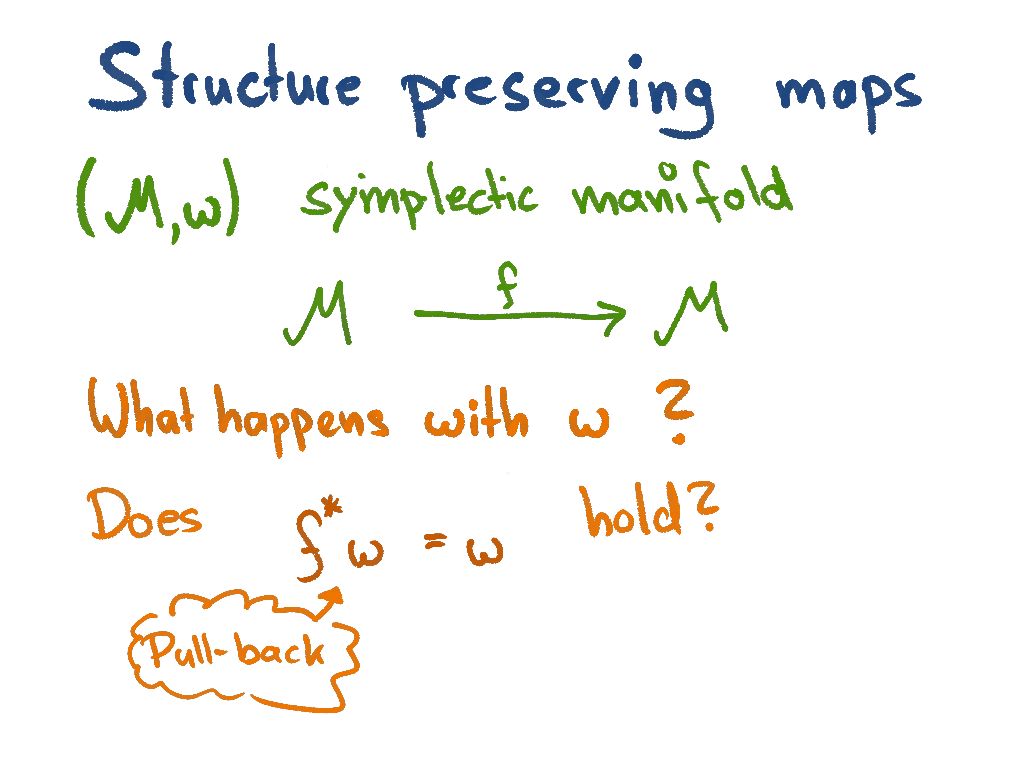 Structure preserving maps
(M, ω) symplectic manifold
M f→ M
What happens with ω ?
Does f*ω = ω hold?
Pull-back